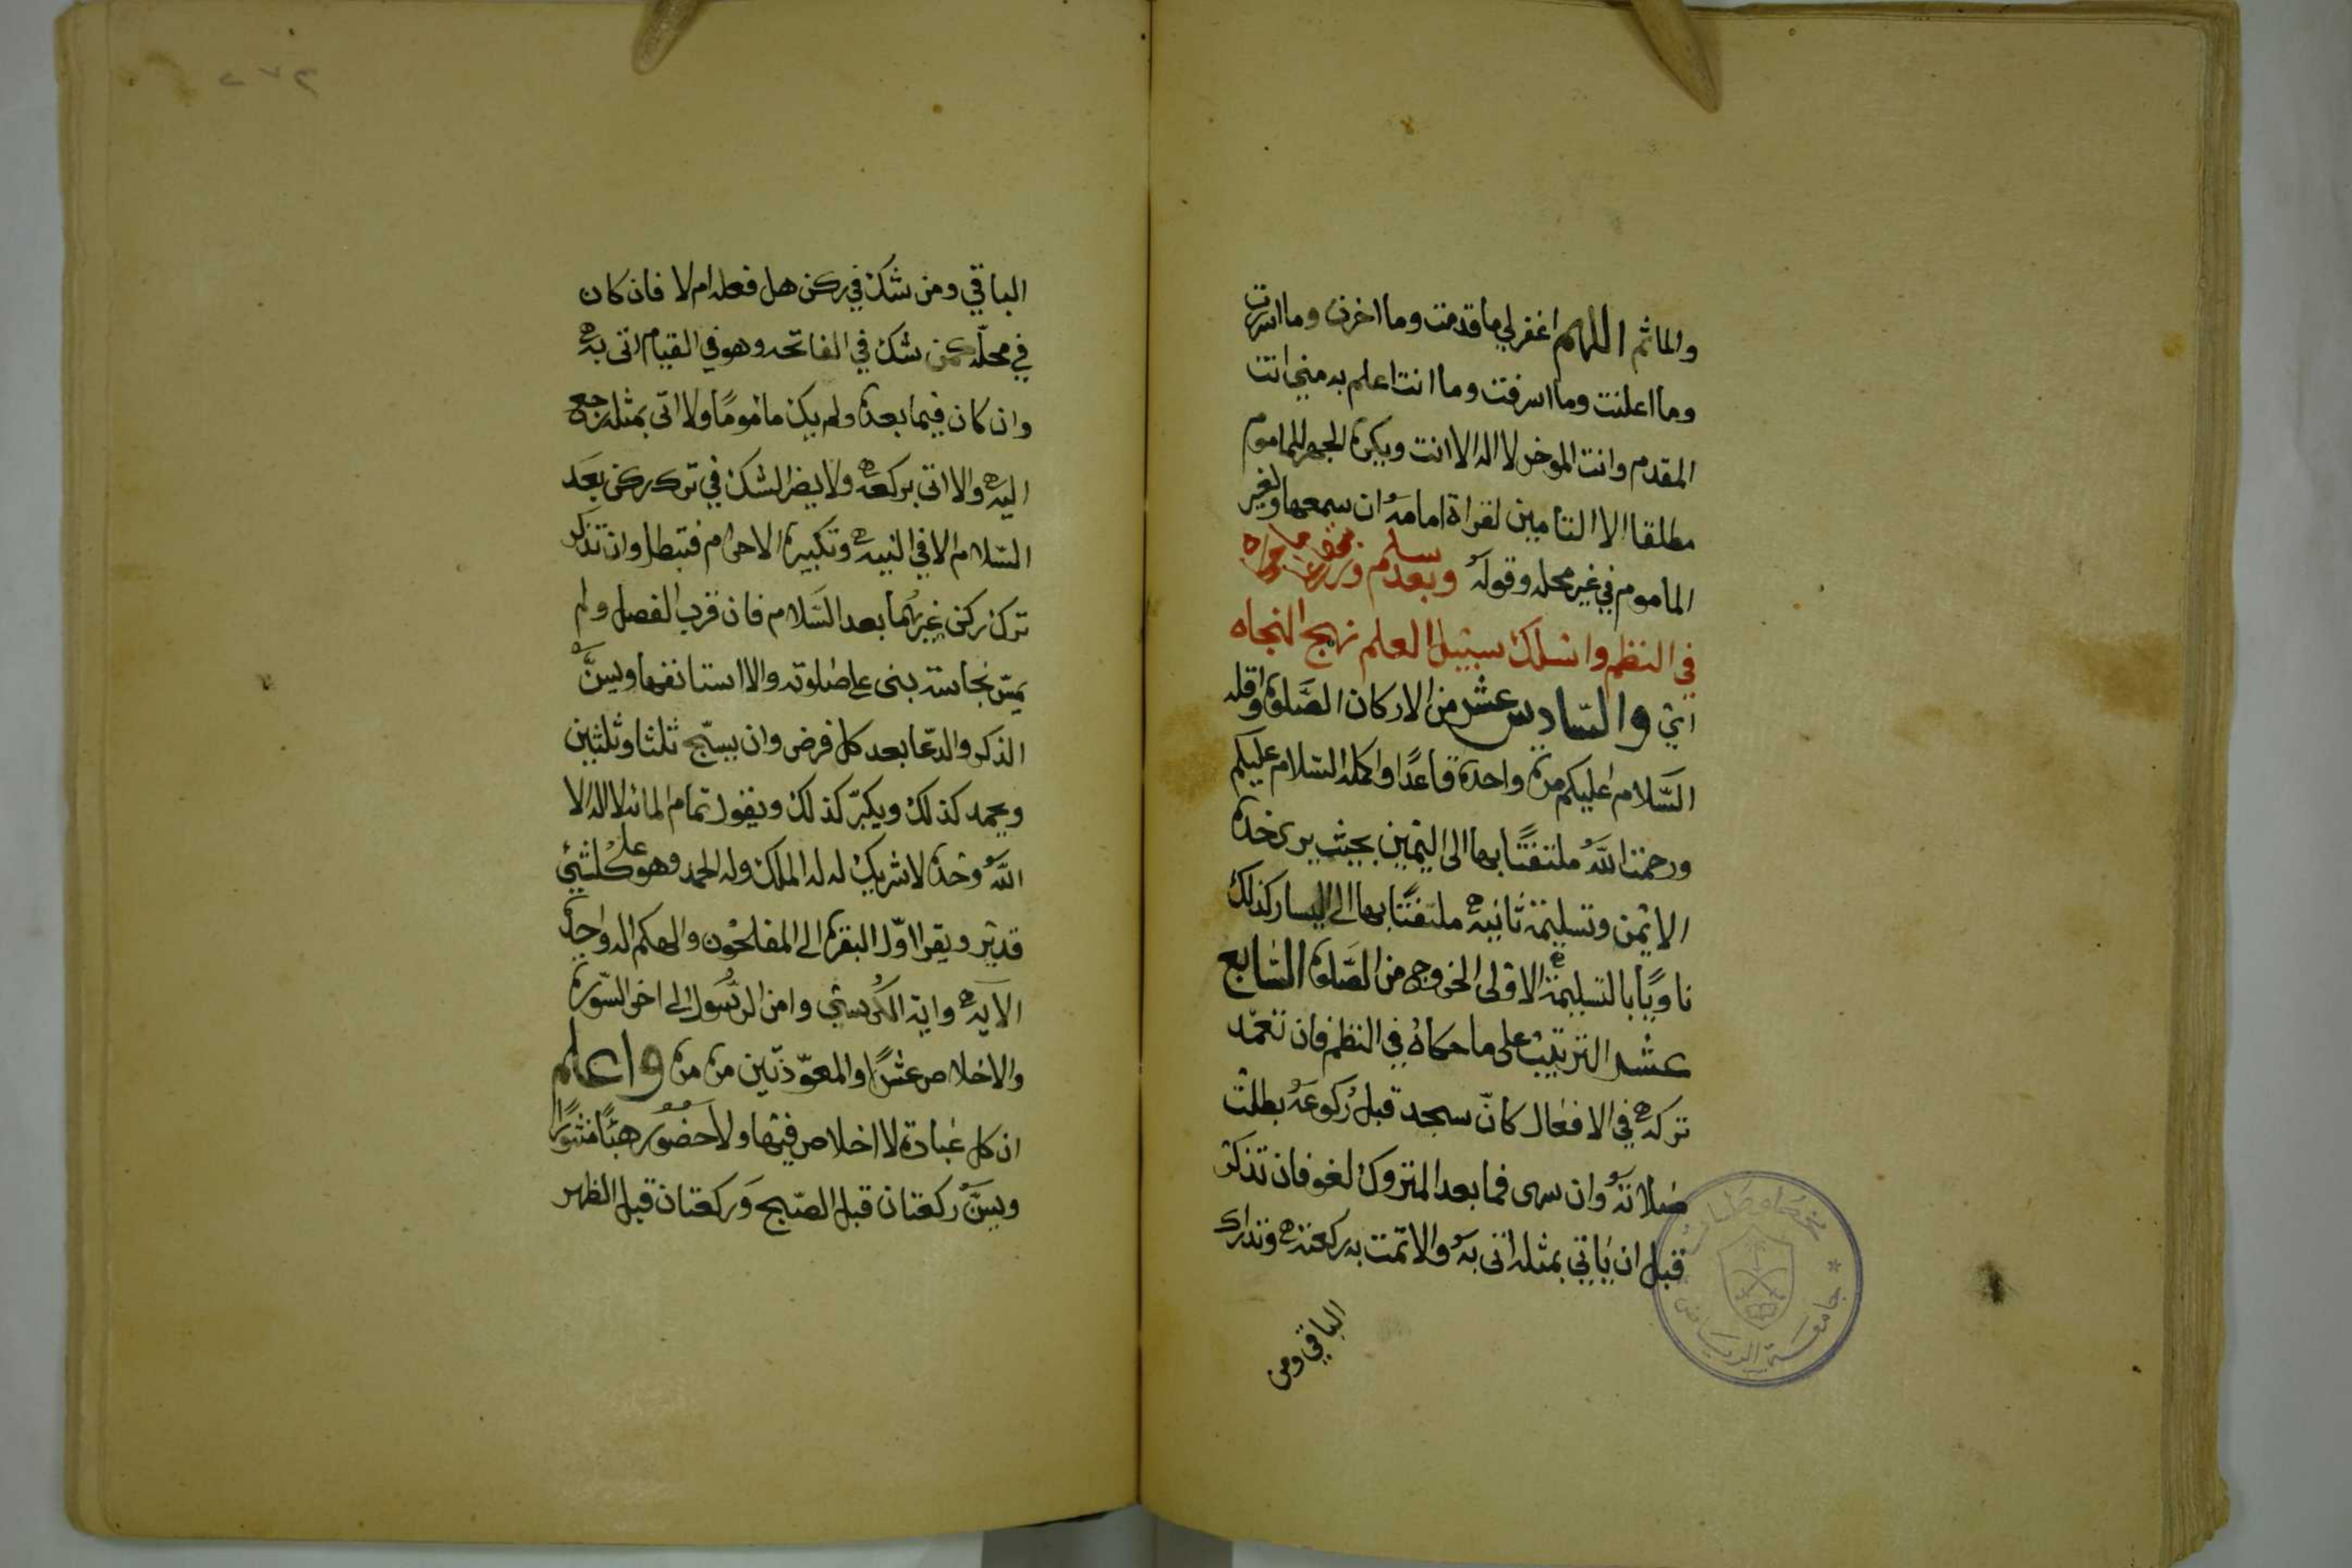 والماثم اللهم اغفر لي ما قدمت وما اخرت وما اسررت
وما اعلنت وما اسرفت وما انت اعلم به مني انت
المقدم وانت الموخر لا اله الا انت ويكره الجهر للماموم
مطلقا الا التامين لقراة امامه ان سمعها ولغير
الماموم في غير محله وقوله وبعد سلم
في النظم واسلك سبيل العلم نهج النجاه
اي والسادس عشر من الاركان الصلوة واقله
السلام عليكم مرة واحدة قاعدًا واكمله السلام عليكم
ورحمت الله ملتفتًا بها الى اليمين بحيث يرى خده
الايمن وتسليمة ثانيه ملتفتًا بها الى اليسار كذلك
ناويًا بالتسليمة الاولى الخروج من الصلوة السابع
عشر الترتيب على ما حكاه في النظم فان تعمد
تركه في الافعال كان سجد قبل ركوعه بطلت
صلاته وان سهى فما بعد المتروك لغو فان تذكر
قبل ان ياتي بمثله اتى به والا تمت به ركعته وتدارك
الباقي ومن
جامعة الرياض
الباقي ومن شك في ركن هل فعله ام لا فان كان
في محله كمن شك في الفاتحه وهو في القيام اتى به
وان كان فيما بعده ولم يكن مامومًا ولا اتى بمثله رجع
اليه والا اتى بركعه ولا يضر الشك في ترك ركن بعد
السلام الا في النيه وتكبيرة الاحرام فتبطل وان تذكر
ترك ركن غيرهما بعد السلام فان قرب الفصل ولم
يمس نجاسة بنى على صلوته والا استانفها ويسن
الذكر والدعا بعد كل فرض وان يسبح ثلثا وثلثين
ويحمد كذلك ويكبر كذلك ويقول تمام المائه لا اله الا
الله وحده لا شريك له له الملك وله الحمد وهو على كل شيئ
قدير ويقرا اول البقرة الى المفلحون والهكم اله واحد
الآيه واية الكرسي وامن الرسول الى اخر السورة
والاخلاص عشرًا والمعوذتين مرة مرة واعلم
ان كل عبادة لا اخلاص فيها ولا حضور هباً منثورًا
ويسن ركعتان قبل الصبح وركعتان قبل الظهر